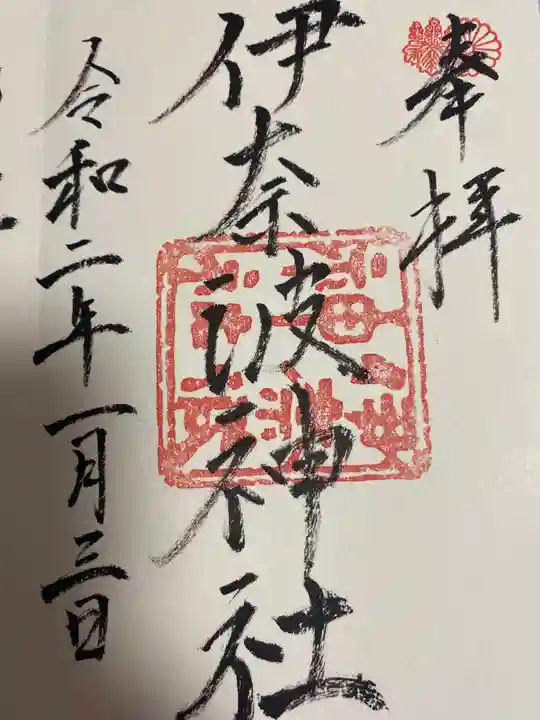 奉拝
伊奈波神社
令和二年一月三日